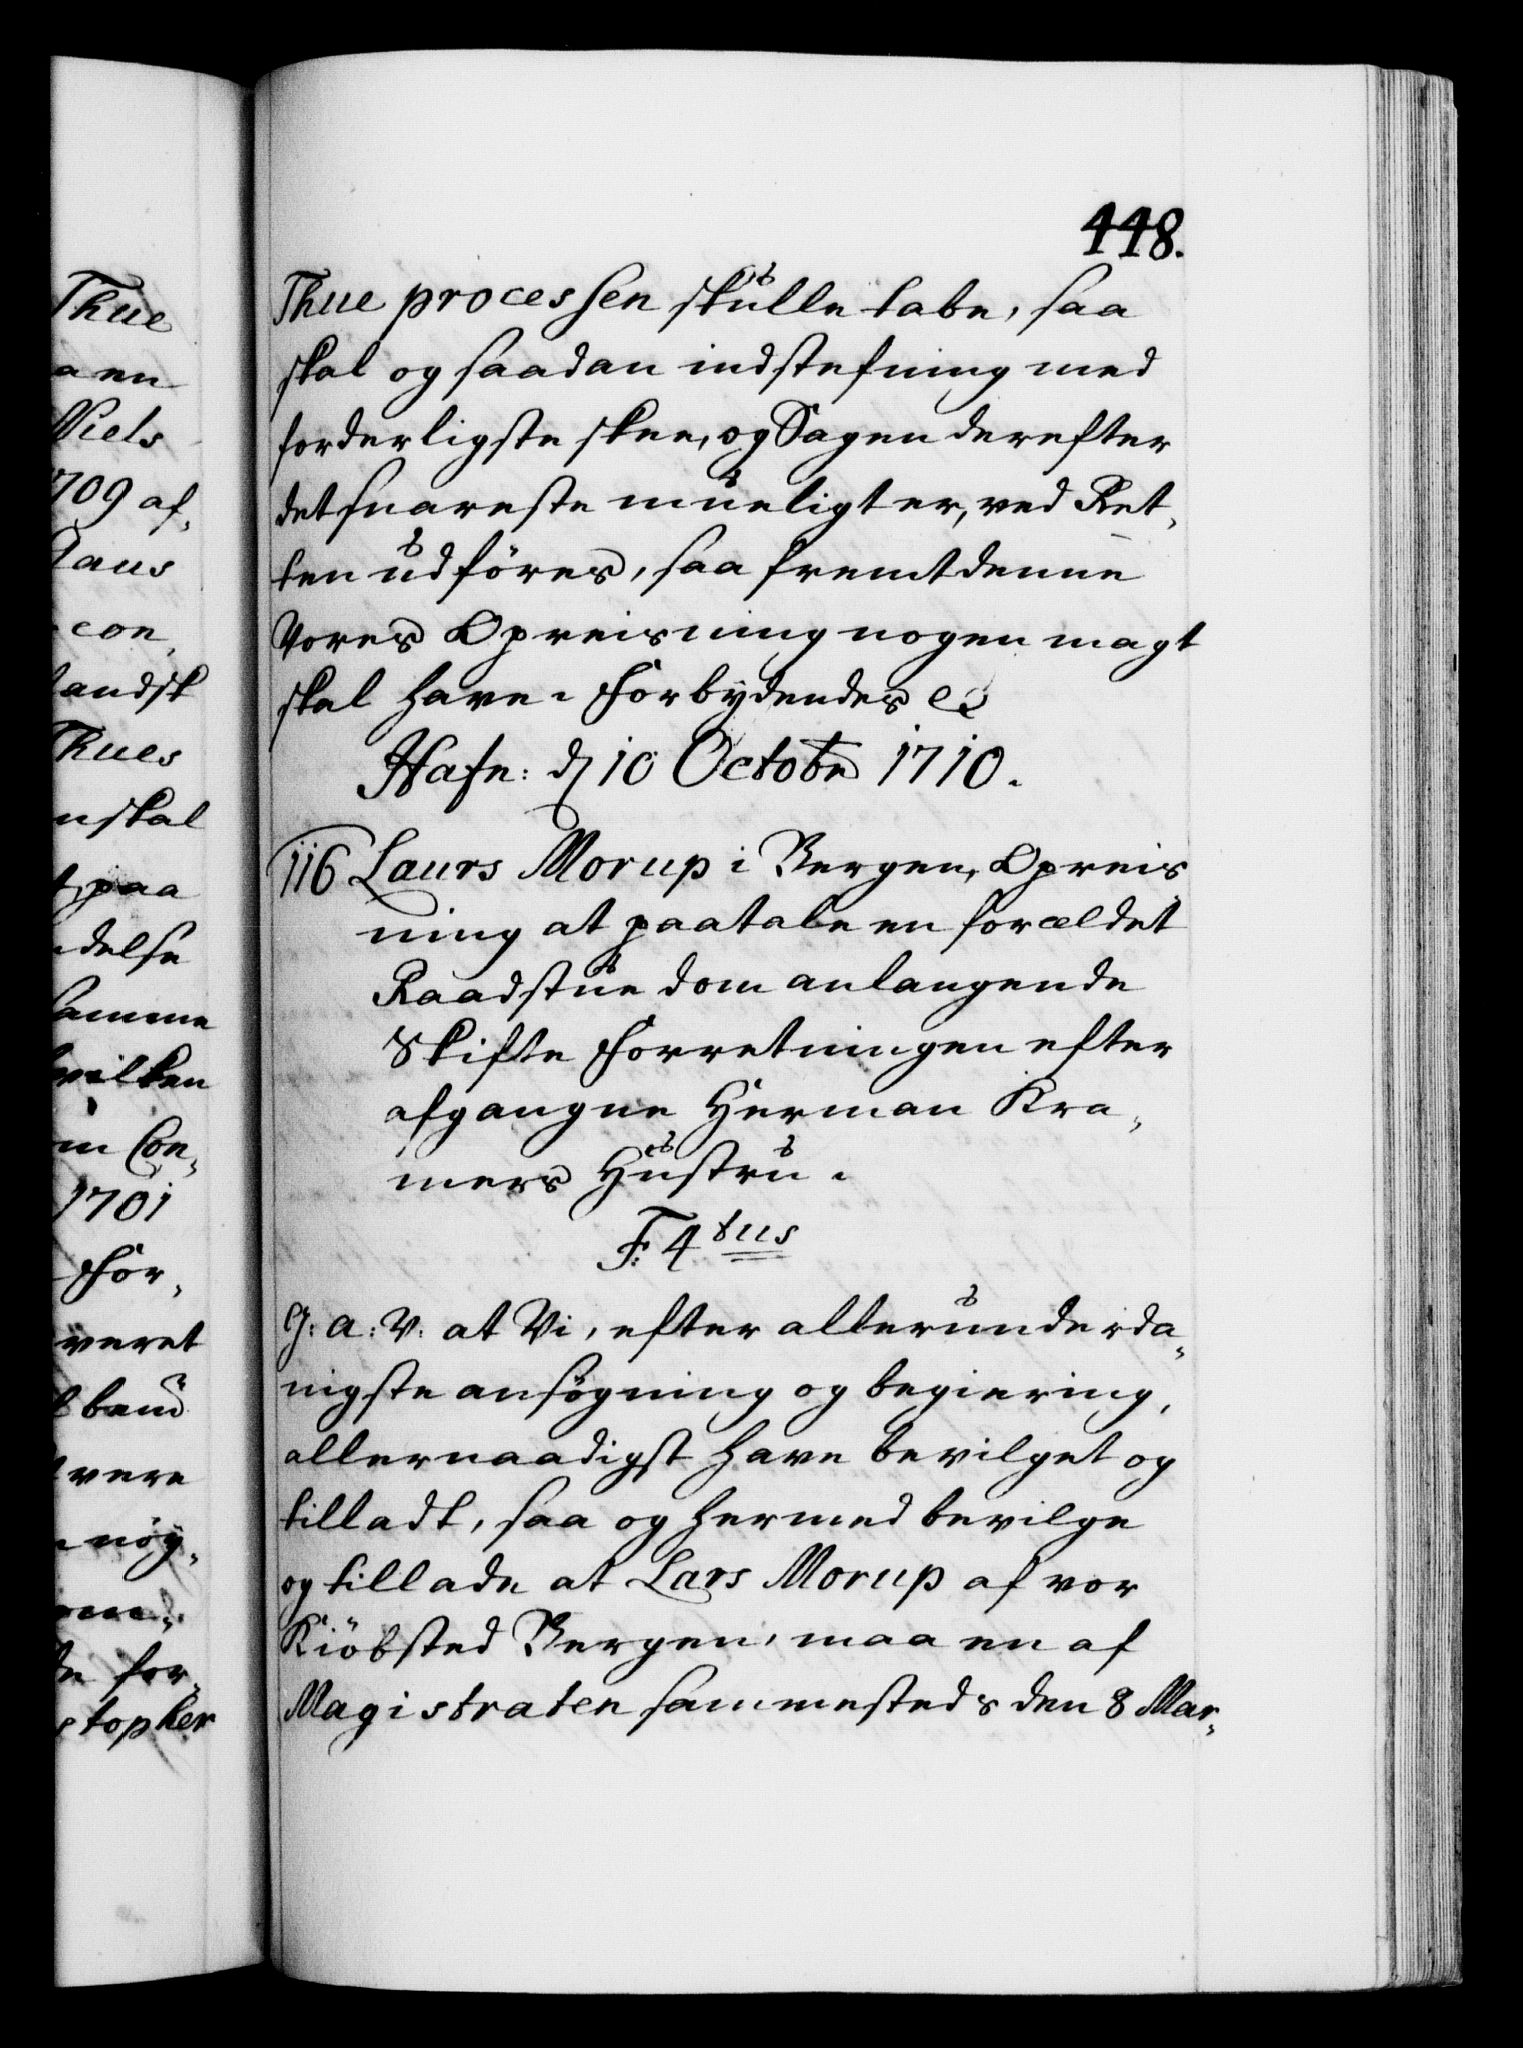 448.
Thue processen skulle tabe, saa
skal og saadan indstefning med
forderligste skee, og Sagen derefter
det snareste mueligt er, ved Ret¬
ten udföres, saa fremt denne
Vores Opreisning nogen magt
skal have. Forbydendes &c
Hafn: d 10 Octobr 1710.
116 Laurs Morup i Bergen, Opreis¬
ning at paatale en forældet
Raadstue dom anlangende
Skifte Forretningen efter
afgangne Herman Kra¬
mers Hustru.
F: 4tus
G: a: V: at Vi, efter allerunderda¬
nigste ansøgning og begiering,
allernaadigst have bevilget og
tilladt, saa og hermed bevilge
og tillade at Lars Morup af vor
Kiöbsted Bergen, maa en af
Magistraten sammesteds den 8 Mar¬
Thue
a en
Niels
1709 af¬
con¬
landsk
Thues
skal
paa
delse
samme
hvilken
m Con¬
1701
For¬
veret
vere
nöy¬
for¬
stopher